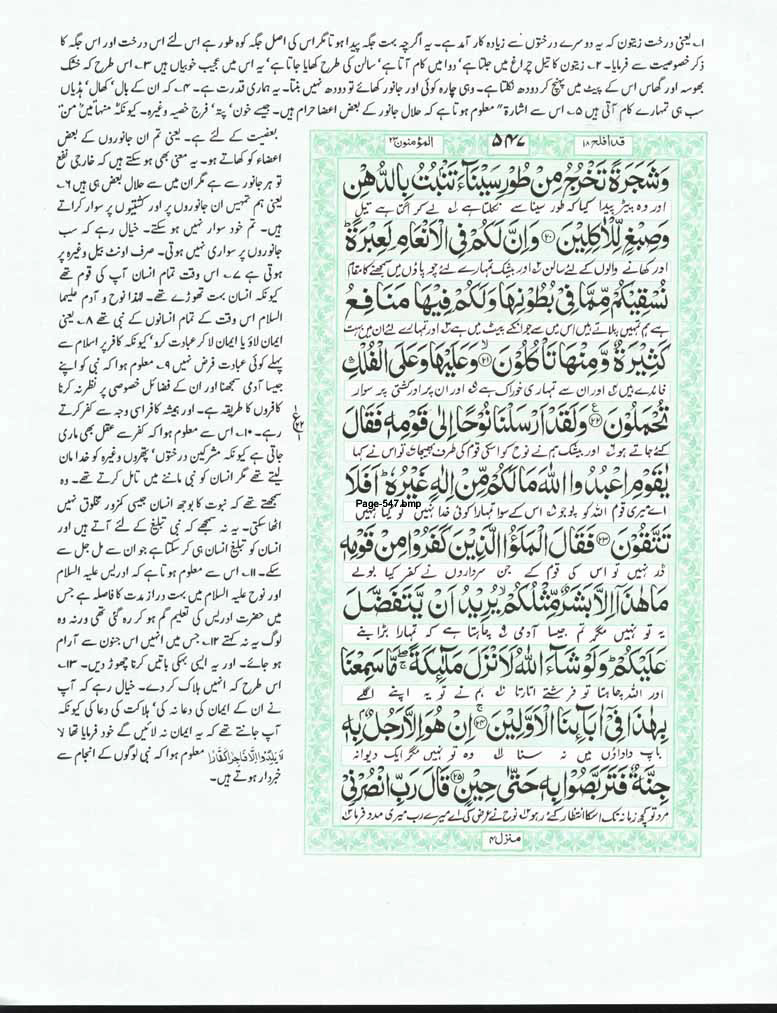 ۱۔ یعنی درخت زیتون کہ یہ دوسرے درختوں سے زیادہ کار آمد ہے۔ یہ اگرچہ بہت جگہ پیدا ہوتا مگر اس کی اصل جگہ کوہ طور ہے اس لئے اس درخت اور اس جگہ کا
ذکر خصوصیت سے فرمایا۔ ۲۔ زیتون کا تیل چراغ میں جلتا ہے' دوا میں کام آتا ہے' سالن کی طرح کھایا جاتا ہے' یہ اس میں عجیب خوبیاں ہیں ۳۔ اس طرح کہ خشک
بھوسہ اور گھاس اس کے پیٹ میں پہنچ کر دودھ نکلتا ہے۔ وہی چارہ کوئی اور جانور کھائے تو دودھ نہیں بنتا۔ یہ ہماری قدرت ہے۔ ۴۔ کہ ان کے بال' کھال' ہڈیاں
سب ہی تمہارے کام آتی ہیں ۵۔ اس سے اشارۃً معلوم ہوتا ہے کہ حلال جانور کے بعض اعضا حرام ہیں۔ جیسے خون' پتہ' فرج خصیہ وغیرہ۔ کیونکہ منہا میں من
بعضیت کے لئے ہے۔ یعنی تم ان جانوروں کے بعض
اعضاء کو کھاتے ہو۔ یہ معنی بھی ہو سکتے ہیں کہ خارجی نفع
تو ہر جانور سے ہے مگر ان میں سے حلال بعض ہی ہیں ۶۔
یعنی ہم تمہیں ان جانوروں پر اور کشتیوں پر سوار کراتے
ہیں۔ تم خود سوار نہیں ہو سکتے۔ خیال رہے کہ سب
جانوروں پر سواری نہیں ہوتی۔ صرف اونٹ بیل وغیرہ پر
ہوتی ہے ۷۔ اس وقت تمام انسان آپ کی قوم تھے
کیونکہ انسان بہت تھوڑے تھے۔ لہٰذا نوح و آدم علیہما
السلام اس وقت کے تمام انسانوں کے نبی تھے ۸۔ یعنی
ایمان لاؤ یا ایمان لا کر عبادت کرو' کیونکہ کافر پر اسلام سے
پہلے کوئی عبادت فرض نہیں ۹۔ معلوم ہوا کہ نبی کو اپنے
جیسا آدمی سمجھنا اور ان کے فضائل خصوصی پر نظر نہ کرنا
کافروں کا طریقہ ہے۔ اور ہمیشہ کافر اسی وجہ سے کفر کرتے
رہے۔ ۱۰۔ اس سے معلوم ہوا کہ کفر سے عقل بھی ماری
جاتی ہے کیونکہ مشرکین درختوں' پتھروں وغیرہ کو خدا مان
لیتے تھے مگر انسان کو نبی ماننے میں تامل کرتے تھے۔ وہ
سمجھتے تھے کہ نبوت کا بوجھ انسان جیسی کمزور مخلوق نہیں
اٹھا سکتی۔ یہ نہ سمجھے کہ نبی تبلیغ کے لئے آتے ہیں اور
انسان کو تبلیغ انسان ہی کر سکتا ہے جو ان سے مل جل سے
سکے۔ ۱۱۔ اس سے معلوم ہوتا ہے کہ ادریس علیہ السلام
اور نوح علیہ السلام میں بہت دراز مدت کا فاصلہ ہے جس
میں حضرت ادریس کی تعلیم گم ہو کر رہ گئی تھی ورنہ وہ
لوگ یہ نہ کہتے ۱۲۔ جس میں انہیں اس جنون سے آرام
ہو جائے۔ اور یہ ایسی بہکی باتیں کرنا چھوڑ دیں۔ ۱۳۔
اس طرح کہ انہیں ہلاک کر دے۔ خیال رہے کہ آپ
نے ان کے ایمان کی دعا نہ کی' ہلاکت کی دعا کی کیونکہ
آپ جانتے تھے کہ یہ ایمان نہ لائیں گے خود فرمایا تھا لا
لَا یَلِدُوْۤا اِلَّا فَاجِرًا کَفَّارًا معلوم ہوا کہ نبی لوگوں کے انجام سے
خبردار ہوتے ہیں۔
قد افلح ۱۸
۵۴۷
المؤمنون ۲۳
وَشَجَرَةً تَخْرُجُ مِنْ طُوْرِ سَيْنَآءَ تَنْۢبُتُ بِالدُّهْنِ
اور وہ پیڑ پیدا کیا کہ طور سینا سے نکلتا ہے لے کر اگتا ہے تیل
وَصِبْغٍ لِّلْاٰكِلِيْنَ ۲۰ وَاِنَّ لَكُمْ فِي الْاَنْعَامِ لَعِبْرَةً
اور کھانے والوں کے لئے سالن اور بیشک تمہارے لئے چوپاؤں میں سمجھنے کا مقام
نُسْقِيْكُمْ مِّمَّا فِيْ بُطُوْنِهَا وَلَكُمْ فِيْهَا مَنَافِعُ
ہے ہم تمہیں پلاتے ہیں اس میں سے جو انکے پیٹ میں ہے اور تمہارے لئے ان میں بہت
كَثِيْرَةٌ وَّمِنْهَا تَاْكُلُوْنَ ۲۱ وَعَلَيْهَا وَعَلَى الْفُلْكِ
فائدے ہیں اور ان سے تمہاری خوراک ہے اور ان پر اور کشتی پر سوار
تُحْمَلُوْنَ ۲۲ وَلَقَدْ اَرْسَلْنَا نُوْحًا اِلٰى قَوْمِهٖ فَقَالَ
کئے جاتے ہو اور بیشک ہم نے نوح کو اسکی قوم کی طرف بھیجا تو اس نے کہا
يٰقَوْمِ اعْبُدُوا اللّٰهَ مَا لَكُمْ مِّنْ اِلٰهٍ غَيْرُهٗ اَفَلَا
اے میری قوم اللہ کو پوجو اس کے سوا تمہارا کوئی خدا نہیں تو کیا تمہیں
Page-547.bmp
تَتَّقُوْنَ ۲۳ فَقَالَ الْمَلَؤُا الَّذِيْنَ كَفَرُوْا مِنْ قَوْمِهٖ
ڈر نہیں تو اس کی قوم کے جن سرداروں نے کفر کیا بولے
مَا هٰذَاۤ اِلَّا بَشَرٌ مِّثْلُكُمْ يُرِيْدُ اَنْ يَّتَفَضَّلَ
یہ تو نہیں مگر تم جیسا آدمی چاہتا ہے کہ تمہارا بڑا بنے
عَلَيْكُمْ وَلَوْ شَآءَ اللّٰهُ لَاَنْزَلَ مَلٰٓئِكَةً مَّا سَمِعْنَا
اور اللہ چاہتا تو فرشتے اتارتا ہم نے تو یہ اپنے اگلے
بِهٰذَا فِيْۤ اٰبَآئِنَا الْاَوَّلِيْنَ ۲۴ اِنْ هُوَ اِلَّا رَجُلٌۢ بِهٖ
باپ داداؤں میں نہ سنا وہ تو نہیں مگر ایک دیوانہ
جِنَّةٌ فَتَرَبَّصُوْا بِهٖ حَتّٰى حِيْنٍ ۲۵ قَالَ رَبِّ انْصُرْنِيْ
مرد تو کچھ زمانہ تک اسکا انتظار کئے رہو نوح نے عرض کی اے میرے رب میری مدد فرما
منزل ۴